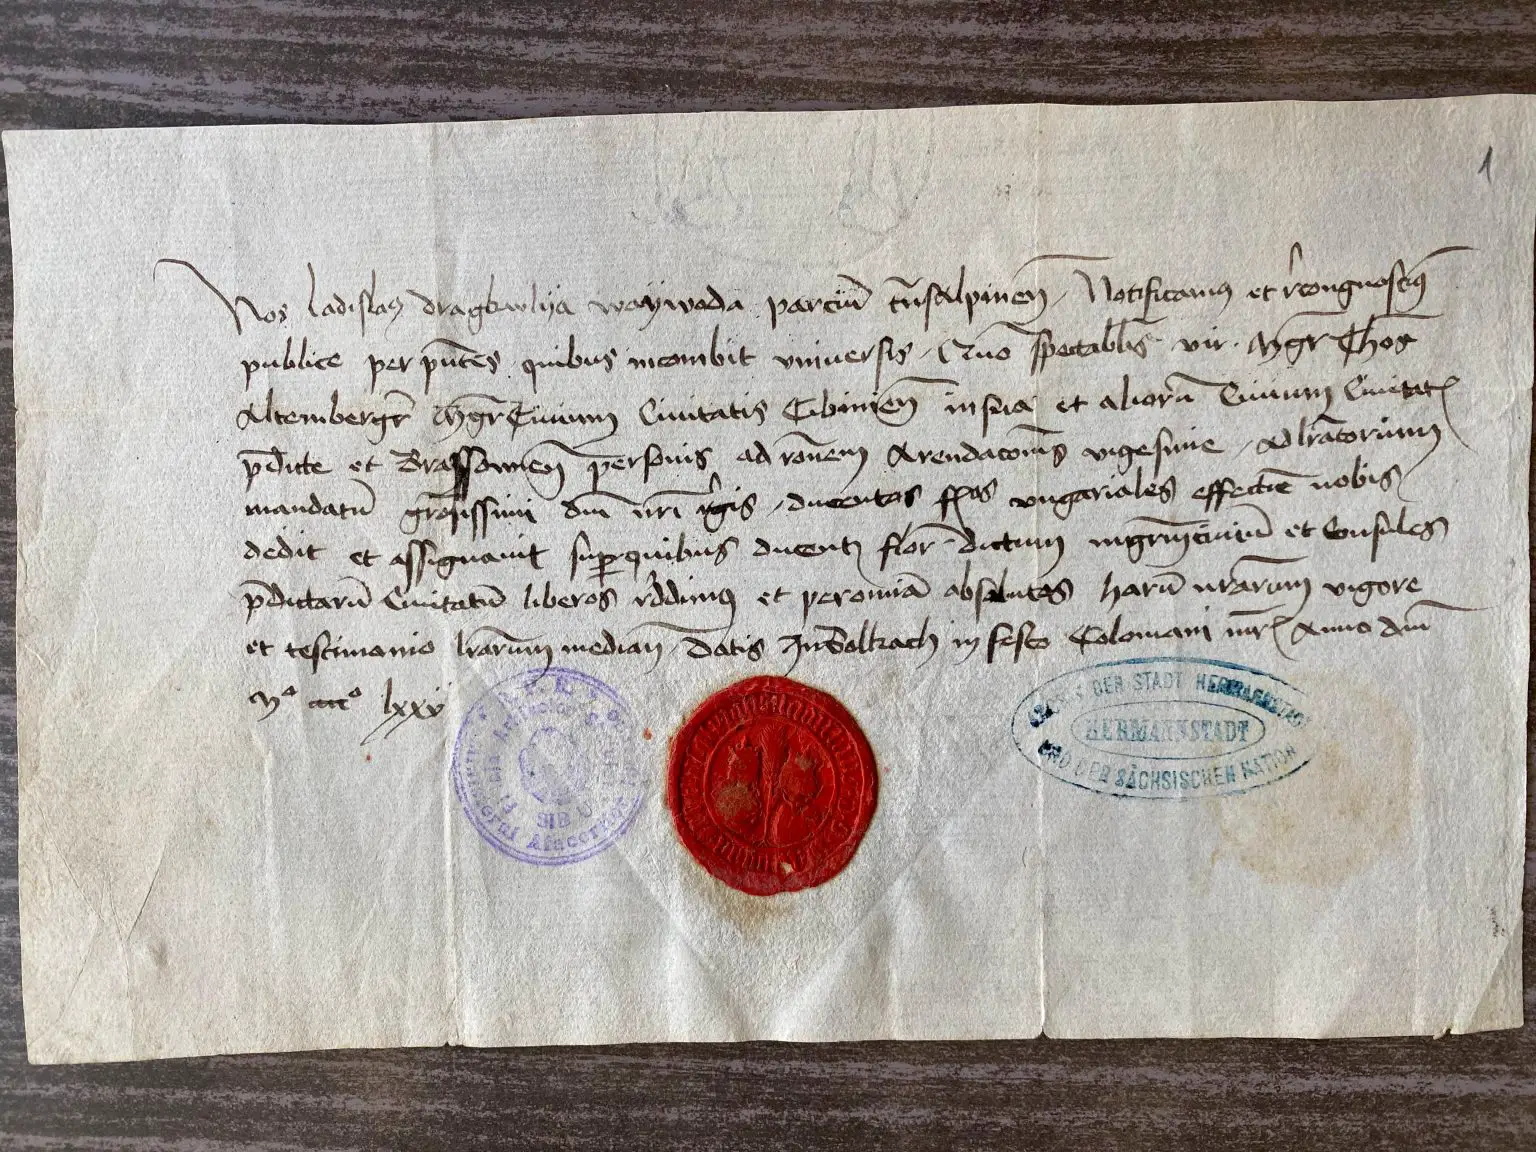 1
Nos Ladislaus dragkwlya waywoda parciū trāsalpineñ Notificamus et recongnoscimꝯ
publice per pn̄tes quibus incombit vniversis Quō spectabilis vir Mgr̄ Thoꝫ
Altemberger Mgr̄ Civium Civitatis Cibinieñ in sua et aliorū Civium Civitatꝭ
p̄dicte et Brassovieñ personis ad rōnem Arendacoīs vigesime Ad lr̄atorium
mandatū grōsissimi dn̄i nr̄i regis ducentos flos vngariales effective nobis
dedit et assignavit super quibus ducentꝭ flor̄ dictum mgrm̄ civiū et Consules
p̄dictarū Civitatū liberos reddimus et per omnia absolutos harū nr̄arum vigore
et testimonio lr̄arum median̄ Datis In Balkach in festo Colomani mr̄ꝭ Anno dn̄i
Mº ccccº lxxv
Arhivele
Sibiu
Afacerilor
ARCHIV DER STADT HERMANNSTADT
HERMANNSTADT
UND DER SÄCHSISCHEN NATION